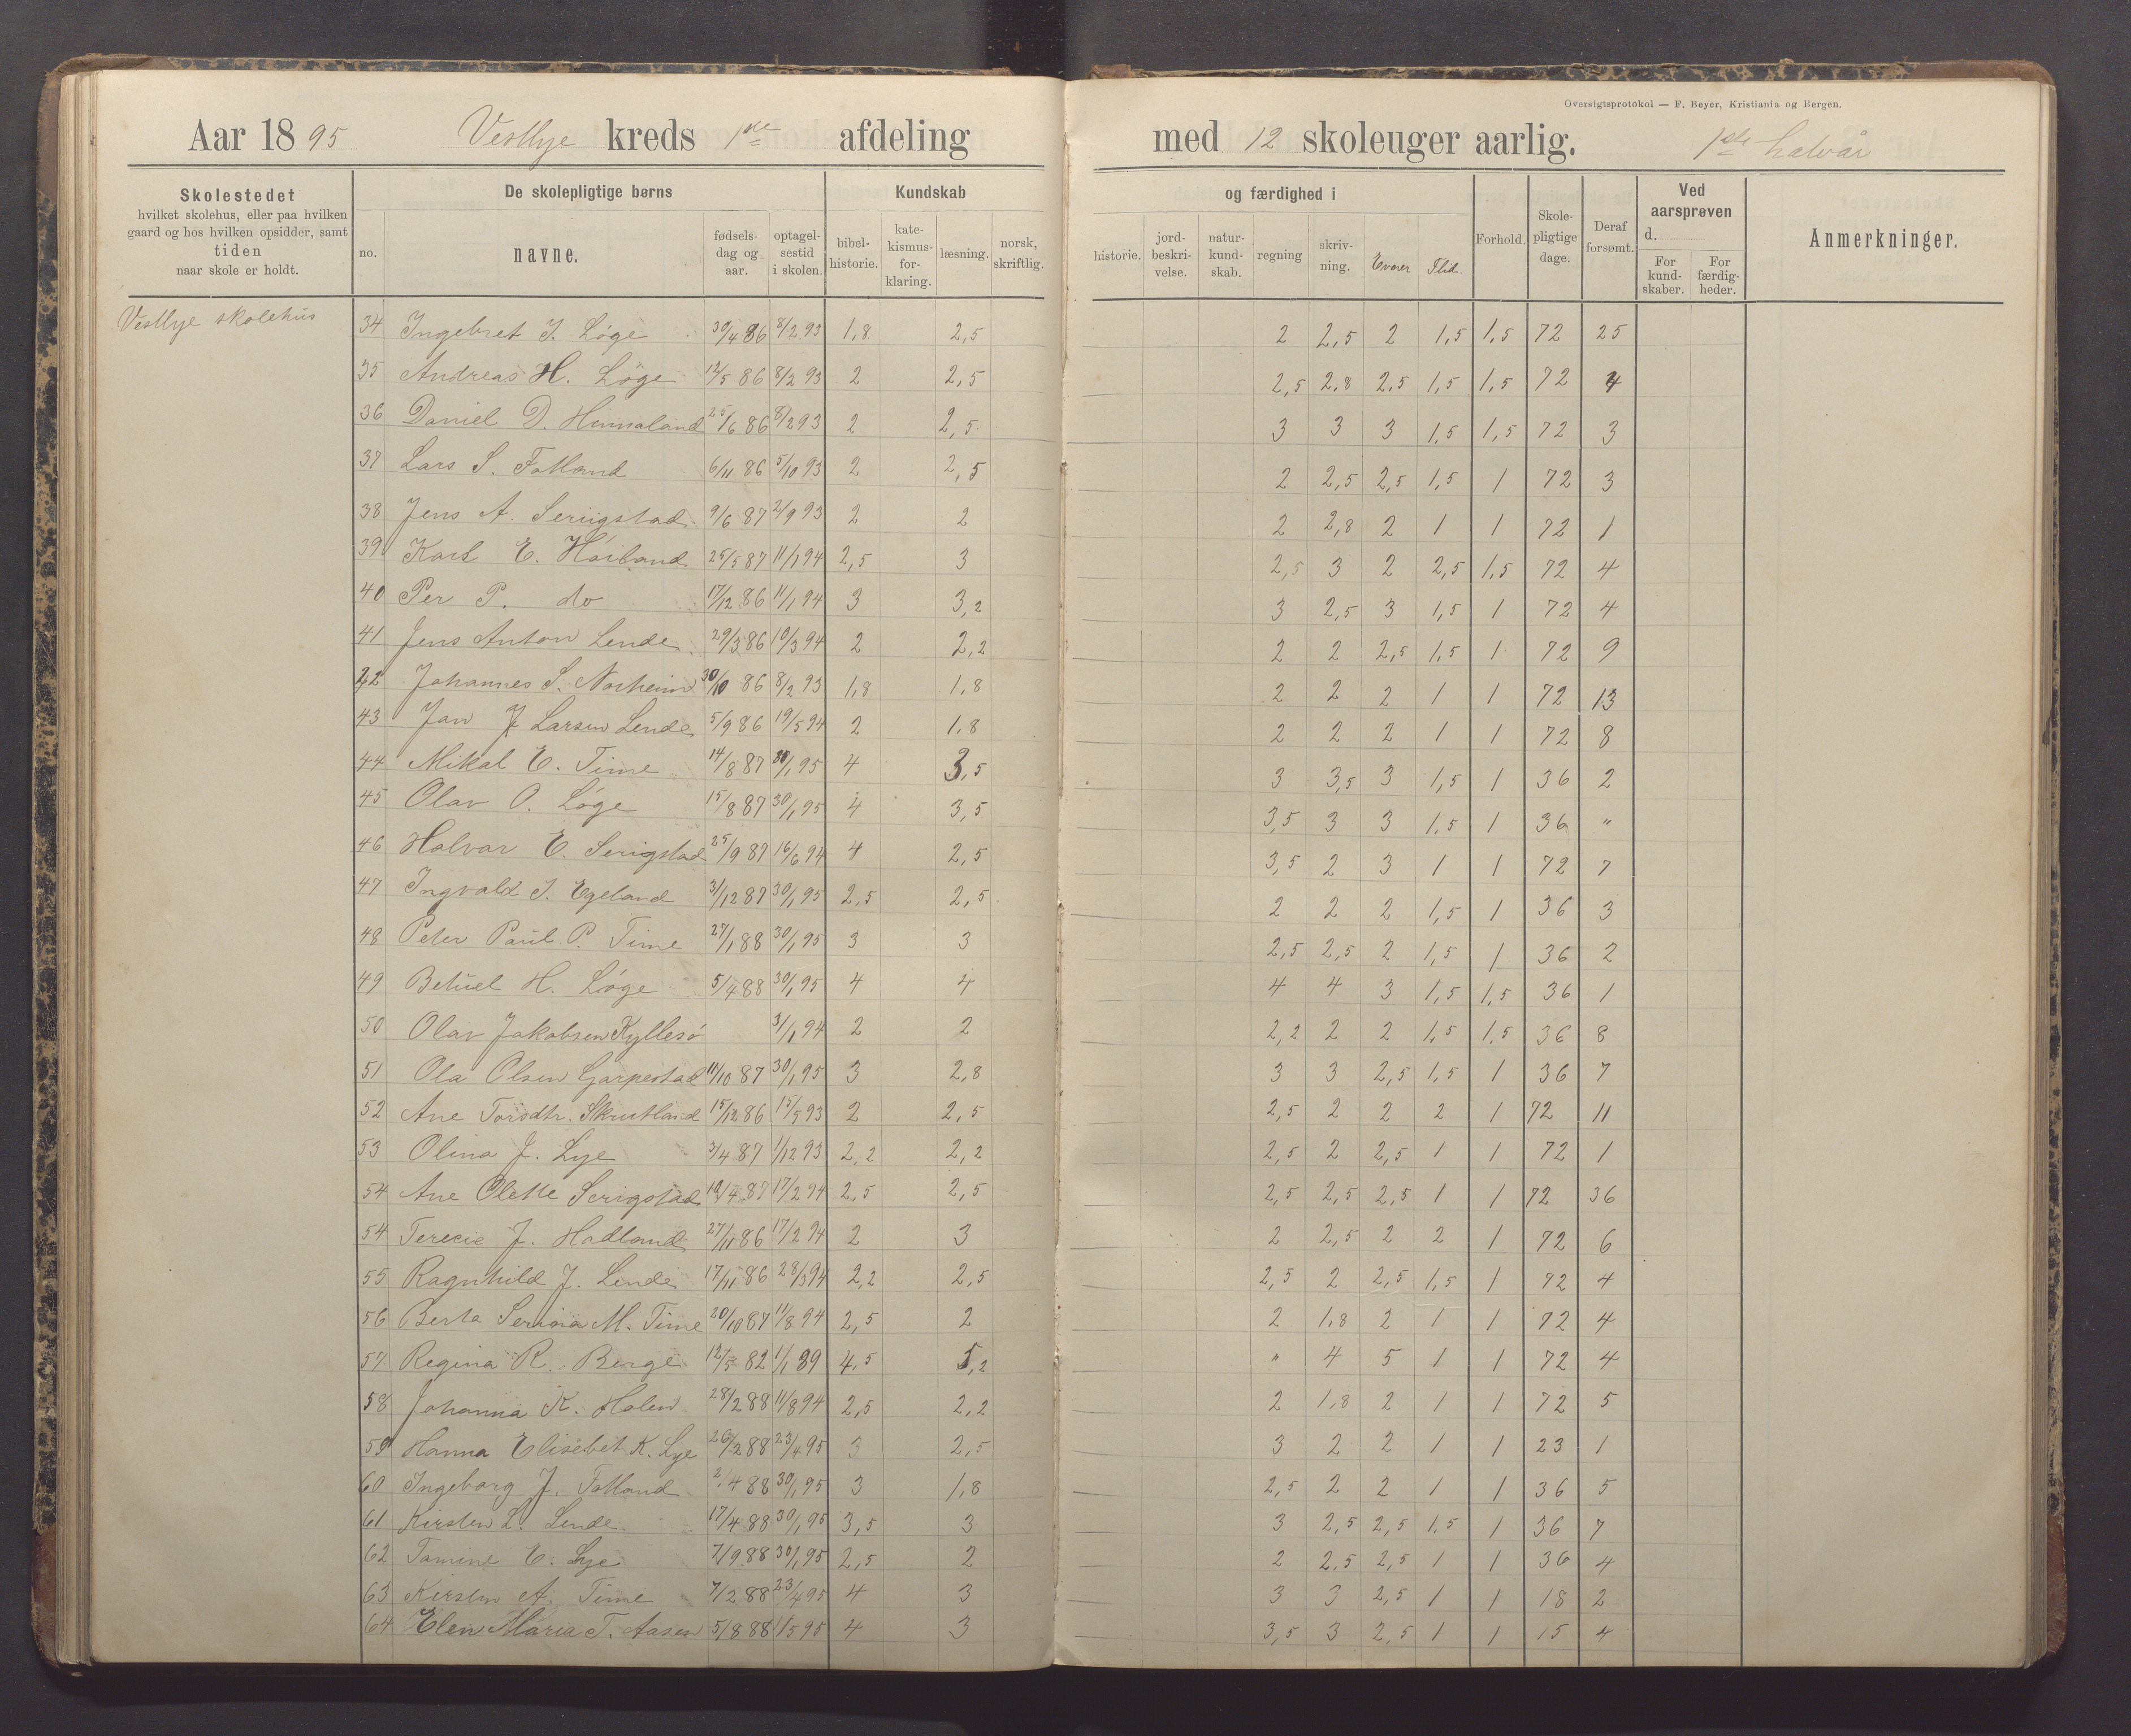 Oversigtsprotokol — F. Beyer, Kristiania og Bergen.
Aar 1895 Vestlye kreds 1ste afdeling med 12 skoleuger aarlig. 1ste halvår
Skolestedet hvilket skolehus, eller paa hvilken gaard og hos hvilken opsidder, samt tiden naar skole er holdt.
De skolepligtige børns
no. navne. fødsels-dag og aar. optagel-sestid i skolen.
Kundskab og færdighed i
bibel-historie. kate-kismus-for-klaring. læsning. norsk, skriftlig. historie. jord-beskri-velse. natur-kund-skab. regning skriv-ning. Evner Flid.
Forhold. Skole-pligtige dage. Deraf forsømt.
Ved aarsprøven d. For kund-skaber. For færdig-heder.
Anmerkninger.
Vestlye skolehus
34 Ingebret J. Løge 30/4 86 8/2 93 1,8 2,5 2 2,5 2 1,5 1,5 72 25
35 Andreas H. Løge 12/5 86 8/2 93 2 2,5 2,5 2,8 2,5 1,5 1,5 72 4
36 Daniel D. Hunnaland 25/6 86 8/2 93 2 2,5 3 3 3 1,5 1,5 72 3
37 Lars S. Fotland 6/11 86 5/10 93 2 2,5 2 2,5 2,5 1,5 1 72 3
38 Jens A. Serigstad 9/6 87 2/9 93 2 2 2 2,8 2 1 1 72 1
39 Karl E. Høiland 25/5 87 11/1 94 2,5 3 2,5 3 2 2,5 1,5 72 4
40 Per P. do 17/12 86 11/1 94 3 3,2 3 2,5 3 1,5 1 72 4
41 Jens Anton Lende 29/3 86 10/3 94 2 2,2 2 2 2,5 1,5 1 72 9
42 Johannes S. Norheim 30/10 86 8/2 93 1,8 1,8 2 2 2 1 1 72 13
43 Jan J Larsen Lende 5/9 86 19/5 94 2 1,8 2 2 2 1 1 72 8
44 Mikal E. Time 14/8 87 30/1 95 4 3,5 3 3,5 3 1,5 1 36 2
45 Olav O. Løge 15/8 87 30/1 95 4 3,5 3,5 3 3 1,5 1 36 "
46 Halvar E. Serigstad 25/9 87 16/6 94 4 2,5 3,5 2 3 1 1 72 7
47 Ingvald J. Egeland 3/12 87 30/1 95 2,5 2,5 2 2 2 1,5 1 36 3
48 Peter Paul P. Time 27/1 88 30/1 95 3 3 2,5 2,5 2 1,5 1 36 2
49 Betuel H. Løge 5/4 88 30/1 95 4 4 4 4 3 1,5 1,5 36 1
50 Olav Jakobsen Kyllesø 3/1 94 2 2 2,2 2 2 1,5 1,5 36 8
51 Ola Olsen Garpestad 11/10 87 30/1 95 3 2,8 3 3 2,5 1,5 1 36 7
52 Ane Torsdtr. Skrutland 15/12 86 15/5 93 2 2,5 2,5 2 2 2 1 72 11
53 Olina J. Lye 3/4 87 1/12 93 2,2 2,2 2,5 2 2,5 1 1 72 1
54 Ane Olette Serigstad 10/4 87 17/2 94 2,5 2,5 2,5 2,5 2,5 1 1 72 36
54 Terecie J. Hadland 27/11 86 17/2 94 2 3 2 2,5 2 2 1 72 6
55 Ragnhild J. Lende 17/11 86 28/3 94 2,2 2,5 2,5 2 2,5 1,5 1 72 4
56 Berta Serina M. Time 20/10 87 11/8 94 2,5 2 2 1,8 2 1 1 72 4
57 Regina R. Berge 12/5 82 1/1 89 4,5 5,2 " 4 5 1 1 72 4
58 Johanna K. Holen 28/2 88 11/8 94 2,5 2,2 2 1,8 2 1 1 72 5
59 Hanna Elisebet K. Lye 26/2 88 23/4 95 3 2,5 3 2 2 1 1 23 1
60 Ingeborg J. Fotland 2/4 88 30/1 95 3 1,8 2,5 2 2 1 1 36 5
61 Kirsten L. Lende 17/4 88 30/1 95 3,5 3 3 2,5 2,5 1,5 1 36 7
62 Tomine E. Lye 7/9 88 30/1 95 2,5 2 2 2,5 2,5 1 1 36 4
63 Kirsten A. Time 7/2 88 23/4 95 4 3 3 3 2,5 1 1 18 2
64 Elen Maria T. Aasen 5/8 88 1/5 95 4 3 3,5 3 2,5 1 1 15 4